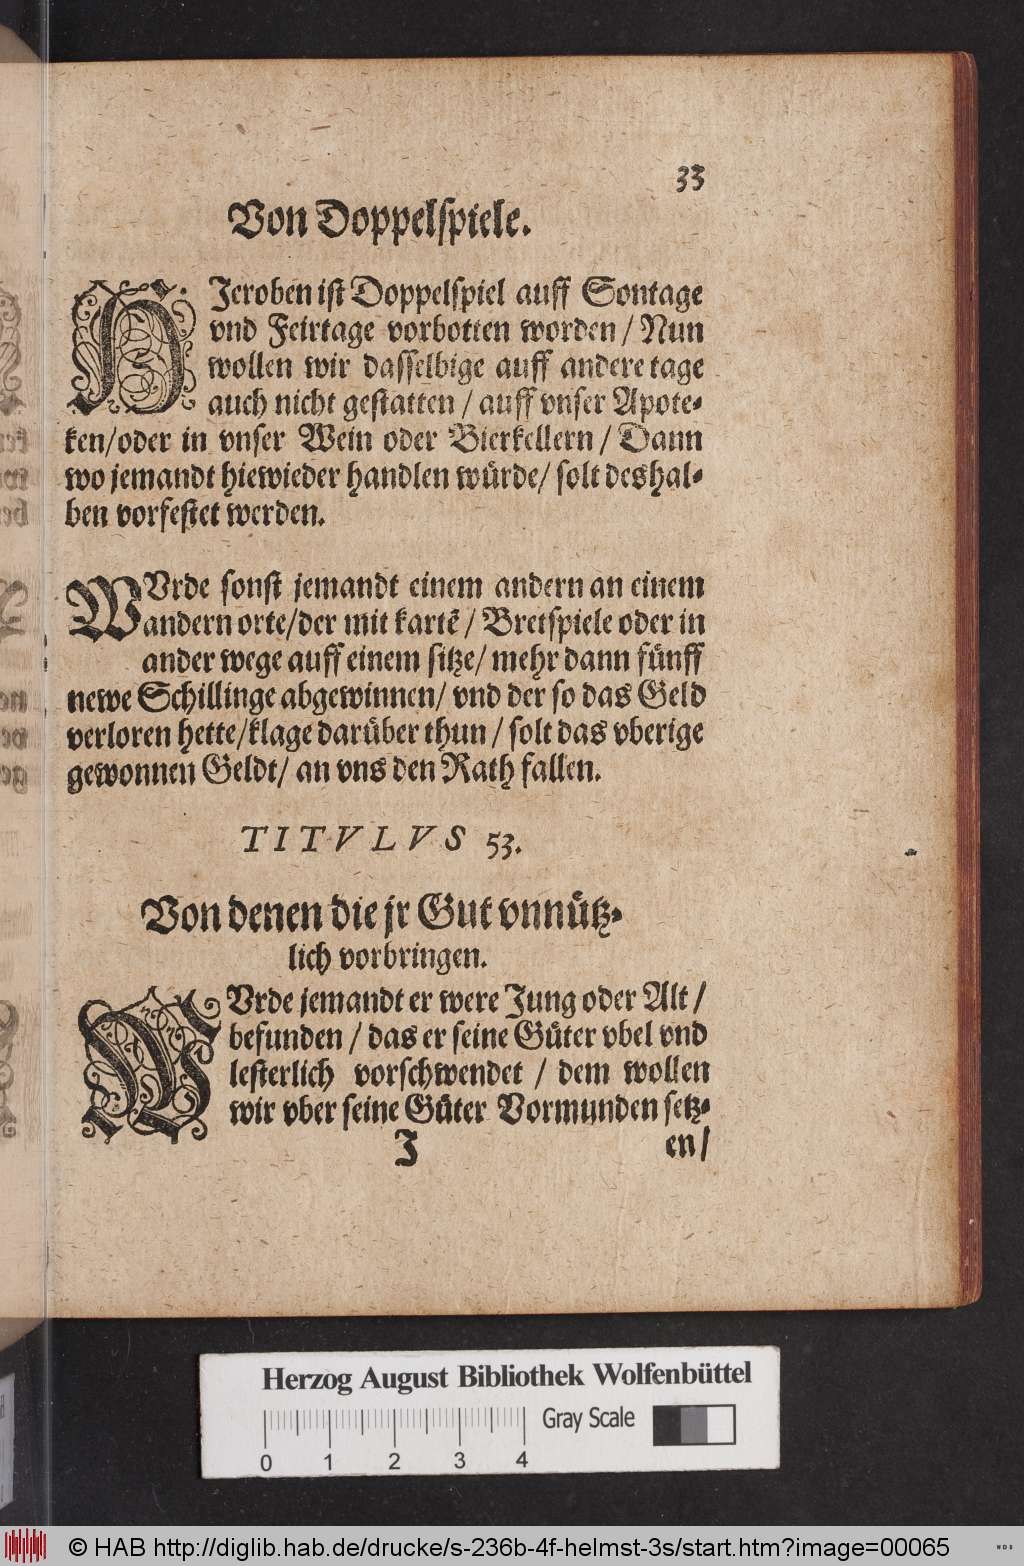 33
Von Doppelspiele.
HJeroben ist Doppelspiel auff Sontage
vnd Feirtage vorbotten worden / Nun
wollen wir dasselbige auff andere tage
auch nicht gestatten / auff vnser Apote-
ken/oder in vnser Wein oder Bierkellern / Dann
wo jemandt hiewieder handlen würde/ solt deshal-
ben vorfestet werden.
WVrde sonst jemandt einem andern an einem
andern orte/der mit kartẽ / Bretspiele oder in
ander wege auff einem sitze/ mehr dann fünff
newe Schillinge abgewinnen/ vnd der so das Geld
verloren hette/klage darüber thun / solt das vberige
gewonnen Geldt/ an vns den Rath fallen.
TITVLVS 53.
Von denen die jr Gut vnnütz-
lich vorbringen.
WVrde jemandt er were Jung oder Alt /
befunden / das er seine Güter vbel vnd
lesterlich vorschwendet / dem wollen
wir vber seine Güter Vormunden setz-
J en/
Herzog August Bibliothek Wolfenbüttel
Gray Scale
0 1 2 3 4
© HAB http://diglib.hab.de/drucke/s-236b-4f-helmst-3s/start.htm?image=00065